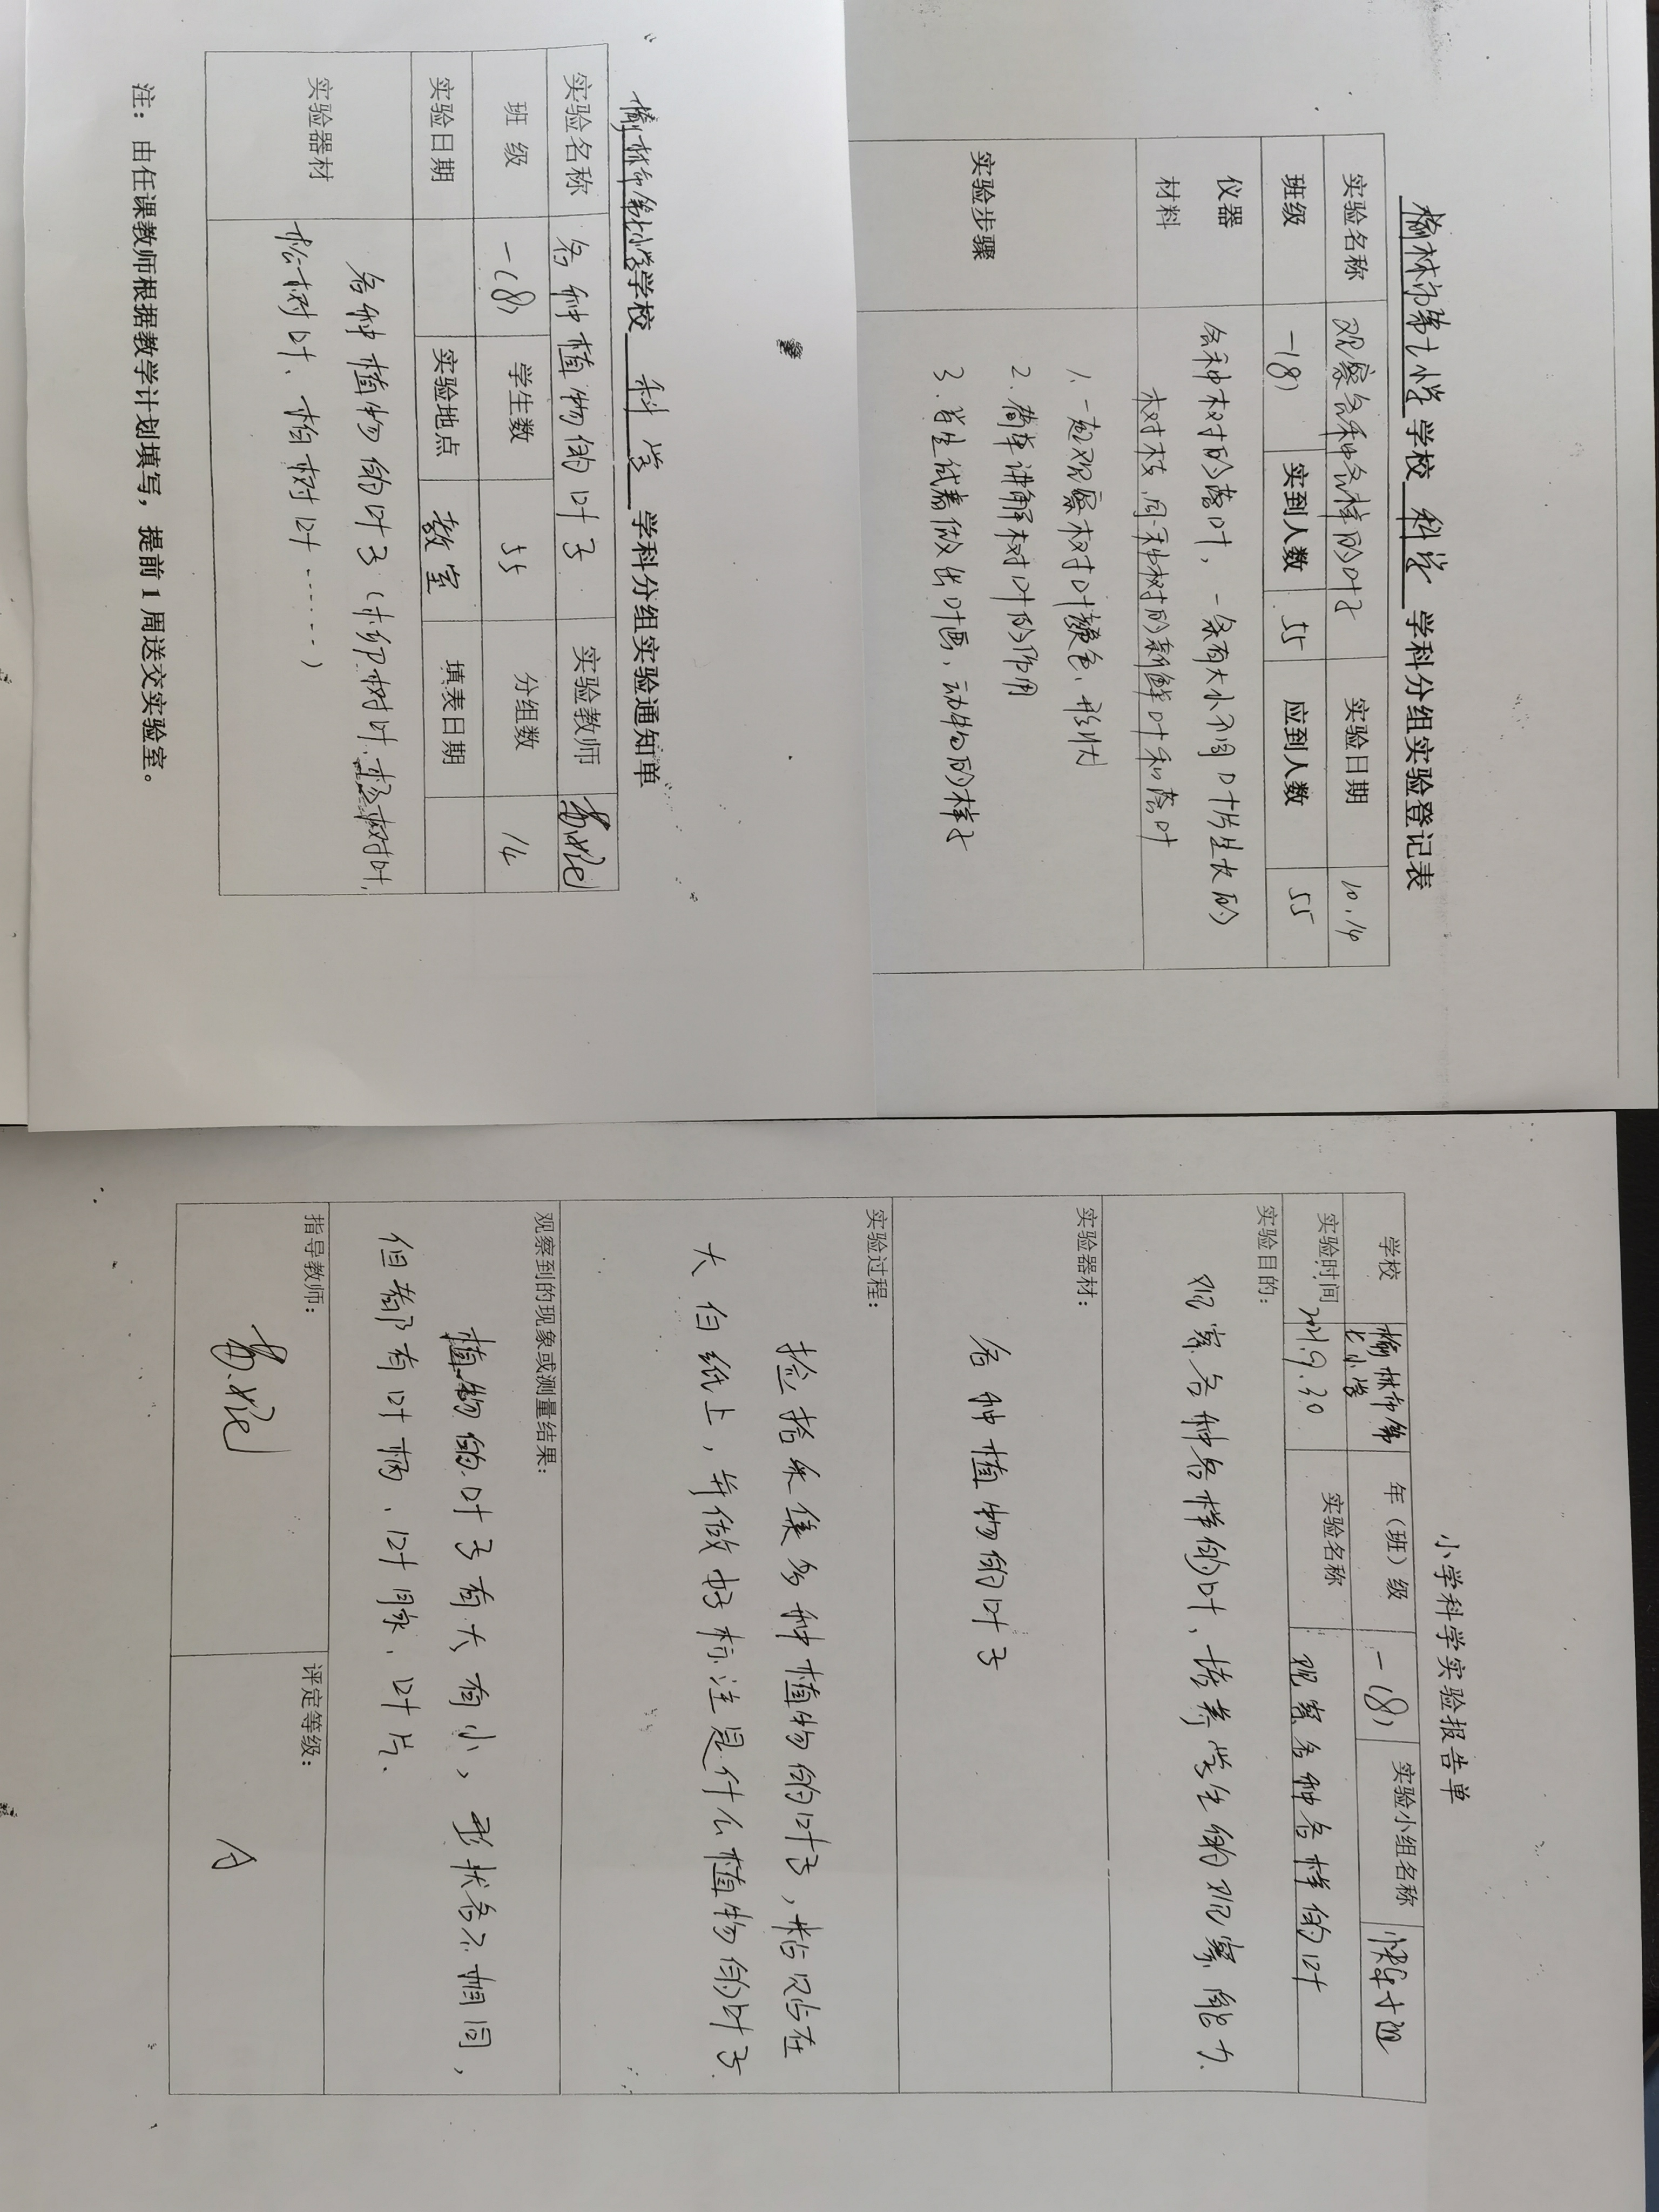 榆林市第七小学学校 科学 学科分组实验登记表
实验名称 观察各种各样的叶子 实验日期 10.14
班级 一(8) 实到人数 55 应到人数 55
仪器 各种树的落叶，一条有大小不同叶片生长的
材料 树枝、同种树的新鲜叶和落叶
实验步骤
1、一起观察树叶颜色、形状
2、简单讲解树叶的作用
3、学生试着做出叶画、动物的样子
榆林市第七小学学校 科学 学科分组实验通知单
实验名称 各种植物的叶子 实验教师
班 级 一(8) 学生数 55 分组数 14
实验日期 实验地点 教室 填表日期
实验器材
各种植物的叶子(柳树叶、杨树叶、
松树叶、柏树叶……)
注：由任课教师根据教学计划填写，提前1周送交实验室。
小学科学实验报告单
学校 榆林市第七小学 年（班）级 一(8) 实验小组名称
实验时间 2021.9.30 实验名称 观察各种各样的叶
实验目的：
观察各种各样的叶、培养学生的观察能力.
实验器材：
各种植物的叶子
实验过程：
捡拾采集多种植物的叶子，粘贴在
大白纸上，并做好标注是什么植物的叶子.
观察到的现象或测量结果：
植物的叶子有大有小，形状各不相同，
但都有叶柄、叶脉、叶片.
指导教师：
评定等级：
A